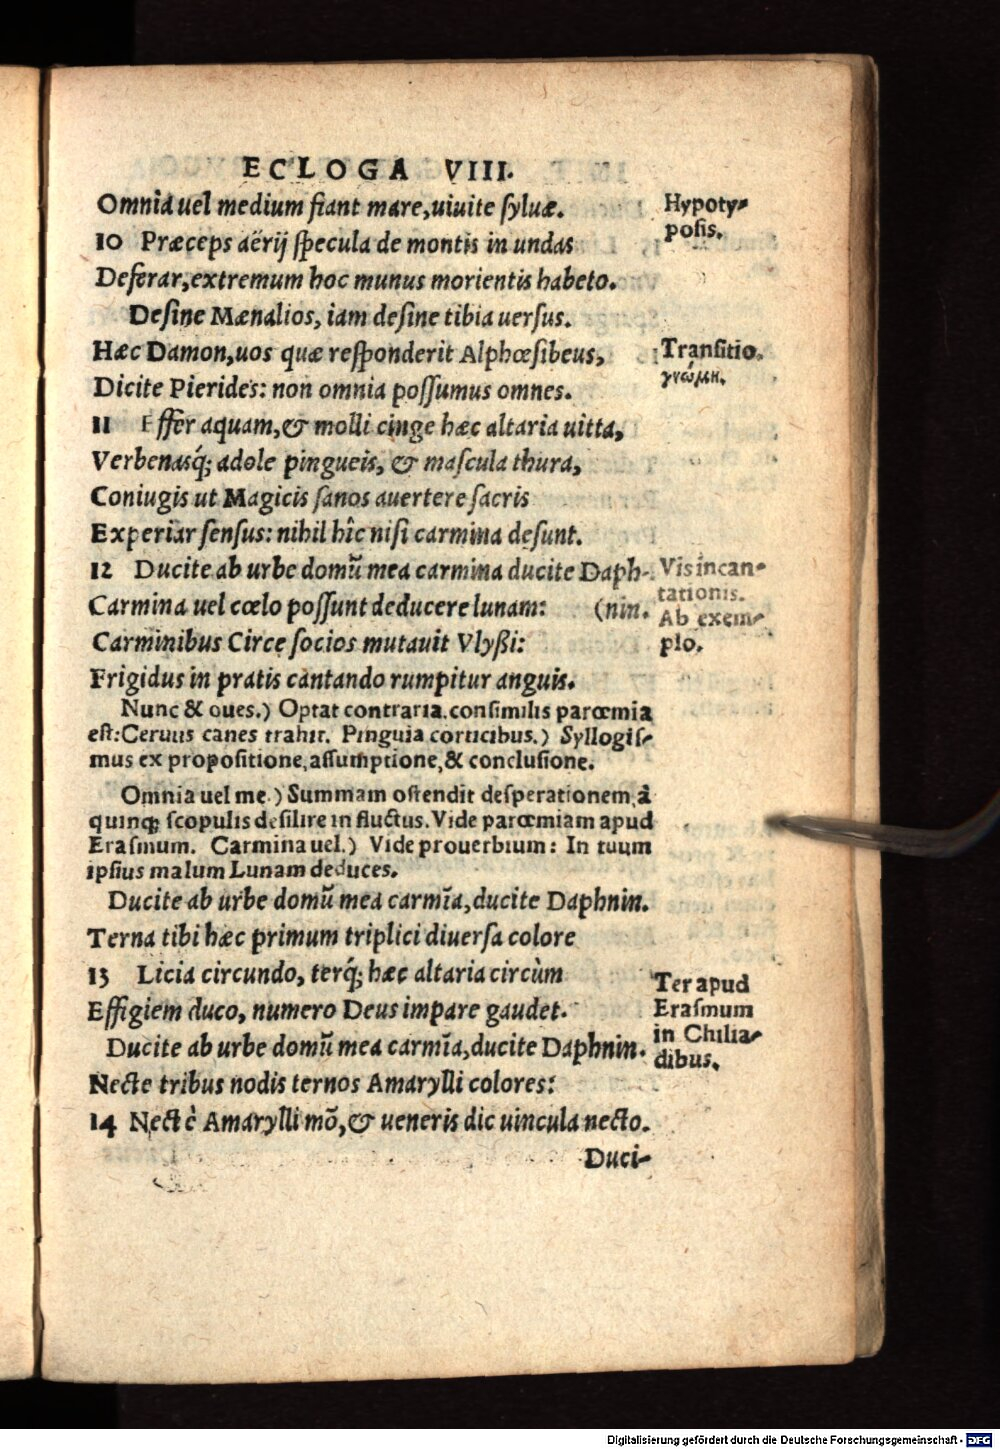 ECLOGA VIII.
Omnia uel medium fiant mare, uiuite syluæ.
Hypoty-
posis.
10 Præceps aërij specula de montis in undas
Deferar, extremum hoc munus morientis habeto.
Desine Mænalios, iam desine tibia uersus.
Hæc Damon, uos quæ responderit Alphœsibeus,
Transitio.
γνώμη.
Dicite Pierides: non omnia possumus omnes.
11 Effer aquam, & molli cinge hæc altaria uitta,
Verbenasq́; adole pingueis, & mascula thura,
Coniugis ut Magicis sanos auertere sacris
Experiar sensus: nihil hîc nisi carmina desunt.
12 Ducite ab urbe domũ mea carmina ducite Daph-
Carmina uel cœlo possunt deducere lunam: (nin.
Vis incan-
tationis.
Ab exem-
plo.
Carminibus Circe socios mutauit Vlyßi:
Frigidus in pratis cantando rumpitur anguis.
Nunc & oues.) Optat contraria. consimilis parœmia
est: Ceruus canes trahit. Pinguia corticibus.) Syllogis-
mus ex propositione, assumptione, & conclusione.
Omnia uel me.) Summam ostendit desperationem, à
quinq; scopulis desilire in fluctus. Vide parœmiam apud
Erasmum. Carmina uel.) Vide prouerbium: In tuum
ipsius malum Lunam deduces.
Ducite ab urbe domũ mea carmĩa, ducite Daphnin.
Terna tibi hæc primum triplici diuersa colore
13 Licia circundo, terq́; hæc altaria circùm
Effigiem duco, numero Deus impare gaudet.
Ter apud
Erasmum
in Chilia-
dibus.
Ducite ab urbe domũ mea carmĩa, ducite Daphnin.
Necte tribus nodis ternos Amarylli colores:
14 Necte Amarylli mõ, & ueneris dic uincula necto.
Duci-
Digitalisierung gefördert durch die Deutsche Forschungsgemeinschaft - DFG